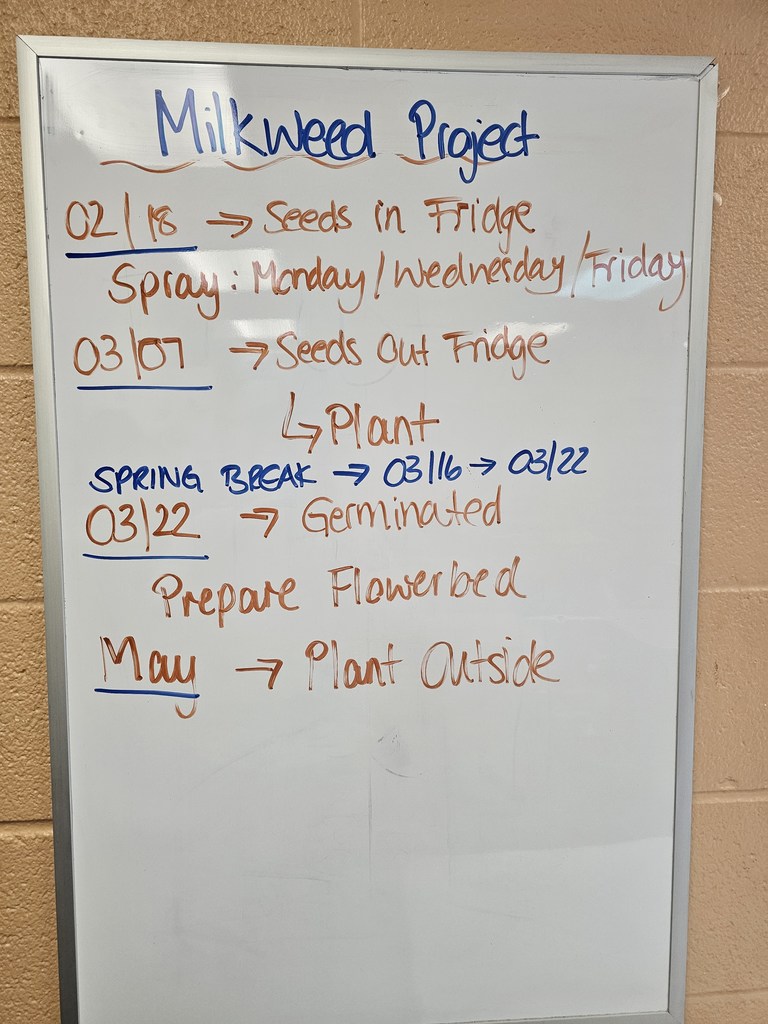 Milkweed Project
02/18 → Seeds in Fridge
Spray: Monday/Wednesday/Friday
03/07 → Seeds Out Fridge
↳ Plant
SPRING BREAK → 03/16 → 03/22
03/22 → Germinated
Prepare Flowerbed
May → Plant Outside